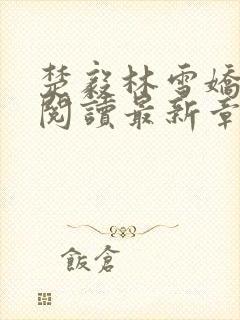 楚毅林雪嬌
閱讀最新章
飯倉